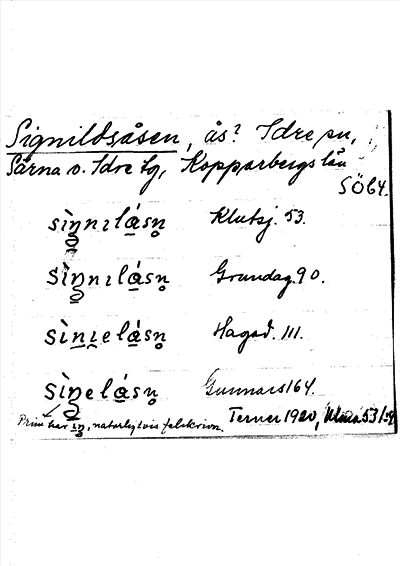 Signildsåsen, ås? Idre sn,
Särna o. Idre tg, Kopparbergs län
SÖ64.
sìŋnɩlásn̥ Klutsj. 53.
sìŋnɩlásn̥ Grundag. 90.
sìn̠ɩ̠elásn̥ Hagad. 111.
sìŋelásn̥ Gunnars 164.
Prim har ìŋ, naturligtvis felskrivn.
Terner 1920, 53/29